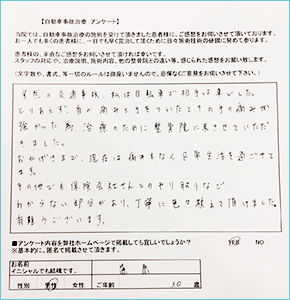 【自動車事故治療 アンケート】
当院では、自動車事故の施術を受けて頂きました患者様に、ご感想をお伺いさせて頂いております。
お一人でも多くの患者様に、一日でも早く完治して頂くために日々施術技術の研鑽に努めて参ります。
患者様の、率直なご感想をお伺いさせて頂ければ幸いです。
スタッフの対応や、治療説明、施術内容、他の整骨院との違い等、感じられた感想をお願い致します。
(文字数や、書式、等一切のルールは御座いませんので、忌憚なくご意見をお伺いさせて下さい。)
突然の交通事故、私は自転車で相手は車でした。
とりあえず、首の痛みと手をついたときの手の痛みが
強かった為、治療のために整骨院に来させていただ
きました。
おかげさまで、現在は痛みもなく日常生活を過ごせてま
す。
その他でも保険会社さんとのやり取りなど
わからない部分があり、丁寧に色々教えて頂けました。
有難うございます。
■アンケート内容を弊社ホームページで掲載しても宜しいでしょうか?
※基本的に、匿名で掲載させて頂きます。
YES NO
お名前
イニシャルでも結構です。
島
性別 男性 女性 ご年齢 30 歳